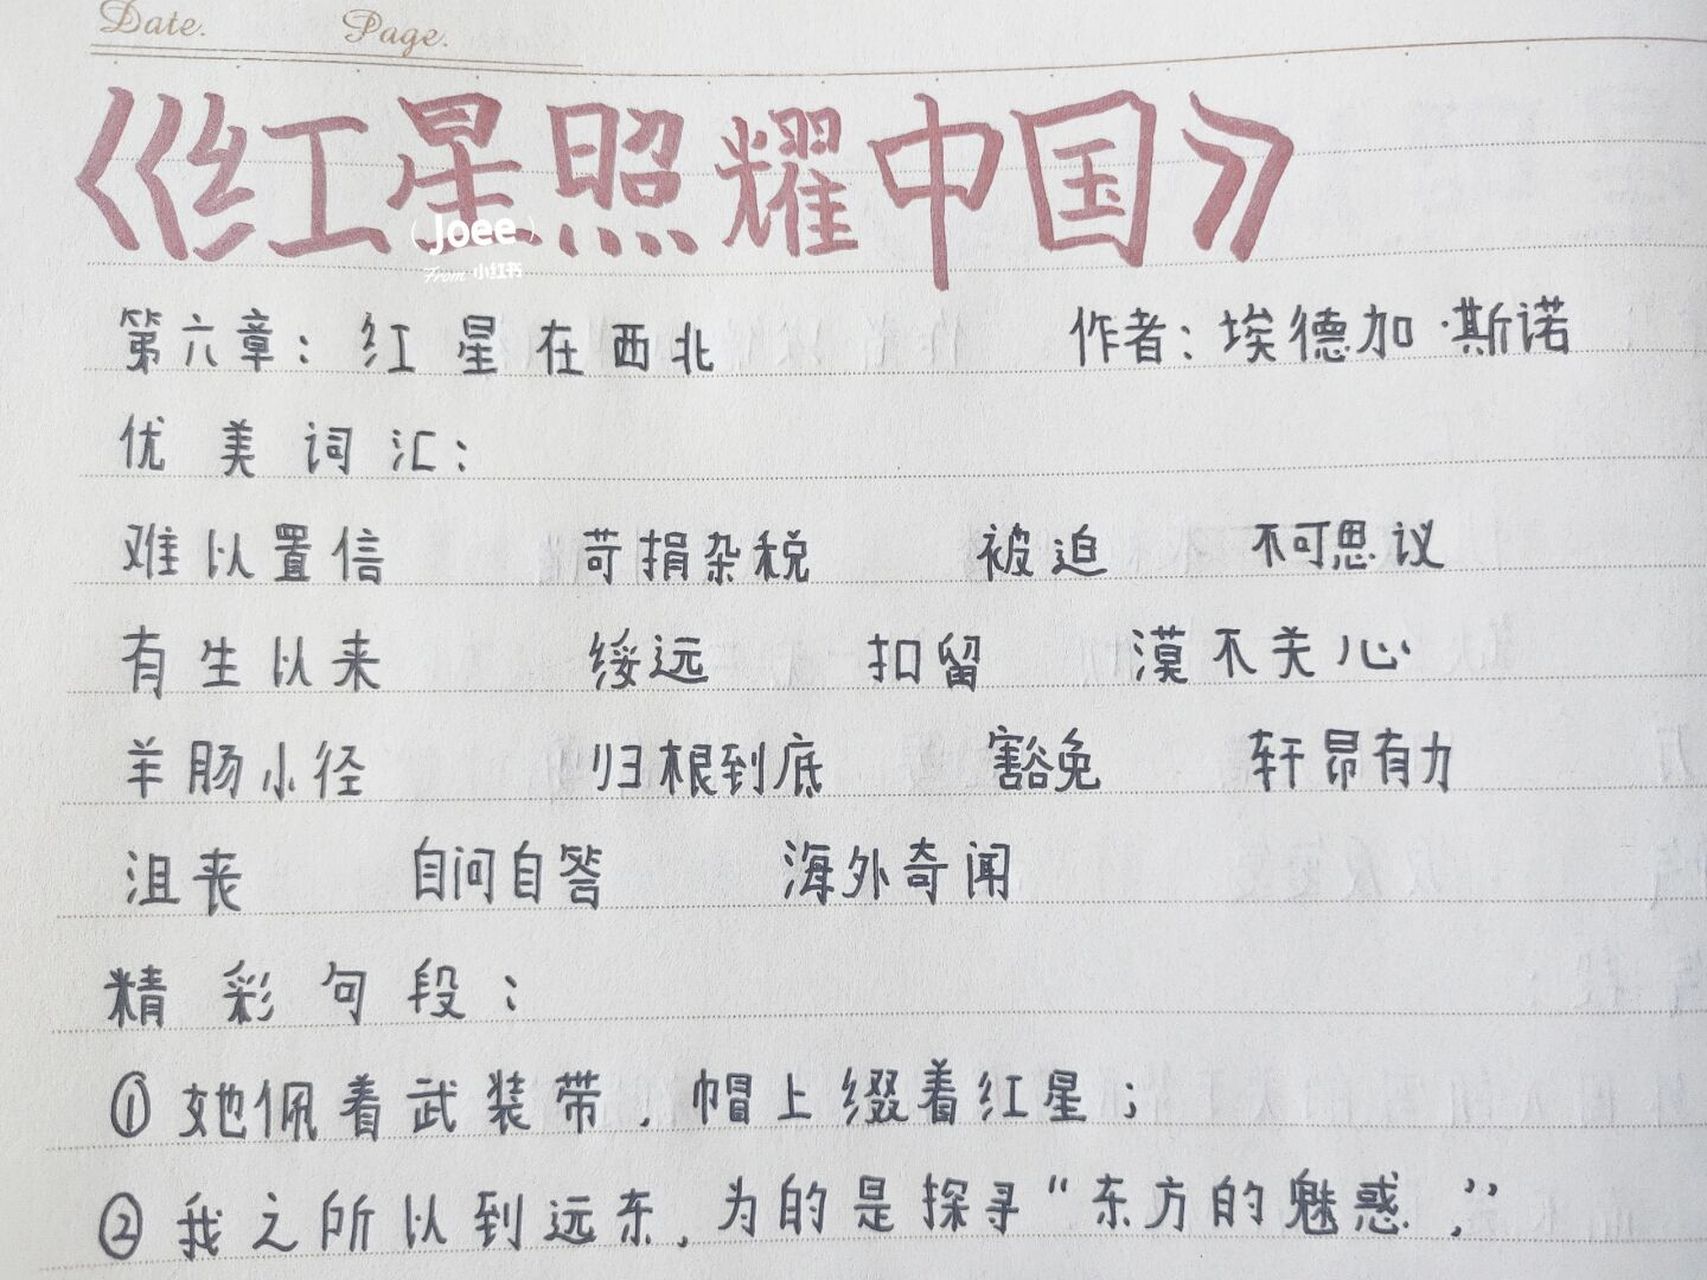 Date. Page.
《红星照耀中国》
Joee
From 小红书
第六章：红星在西北 作者：埃德加·斯诺
优美词汇：
难以置信 苛捐杂税 被迫 不可思议
有生以来 绥远 扣留 漠不关心
羊肠小径 归根到底 豁免 轩昂有力
沮丧 自问自答 海外奇闻
精彩句段：
①她佩着武装带，帽上缀着红星；
②我之所以到远东，为的是探寻“东方的魅惑，”